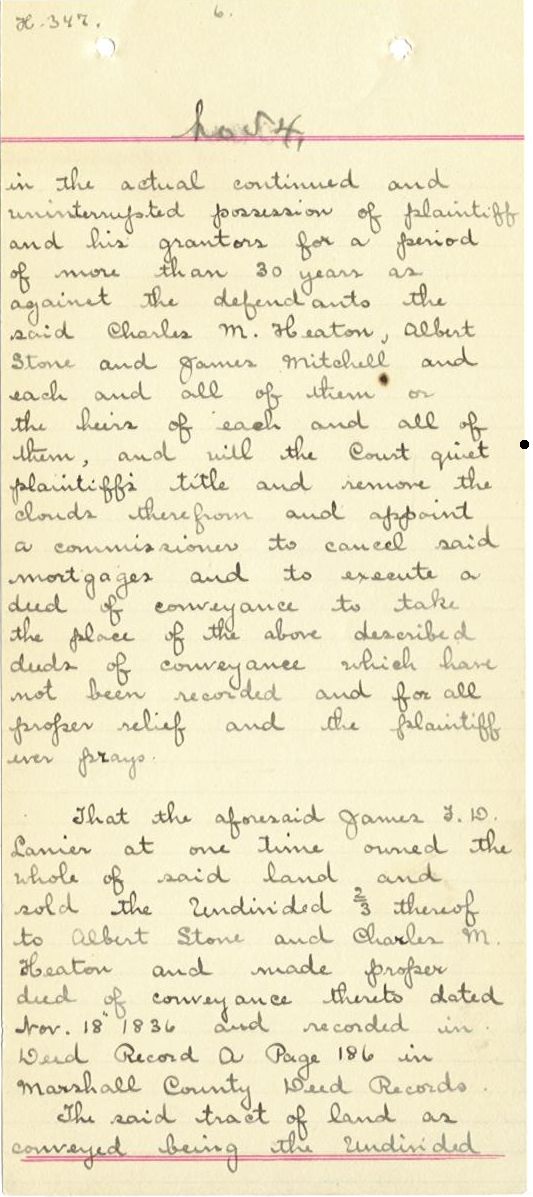 H-347.
6.
No 54,
in the actual continued and
uninterrupted possession of plaintiff
and his grantors for a period
of more than 30 years as
against the defendants the
said Charles M. Heaton, Albert
Stone and James Mitchell and
each and all of them or
the heirs of each and all of
them, and will the Court quiet
plaintiff's title and remove the
clouds therefrom and appoint
a commissioner to cancel said
mortgages and to execute a
deed of conveyance to take
the place of the above described
deeds of conveyance which have
not been recorded and for all
proper relief and the plaintiff
ever prays.
That the aforesaid James F. D.
Lanier at one time owned the
whole of said land and
sold the Undivided 2/3 thereof
to Albert Stone and Charles M.
Heaton and made proper
deed of conveyance thereto dated
Nov. 18" 1836 and recorded in
Deed Record A Page 186 in
Marshall County Deed Records.
The said tract of land as
conveyed being the Undivided